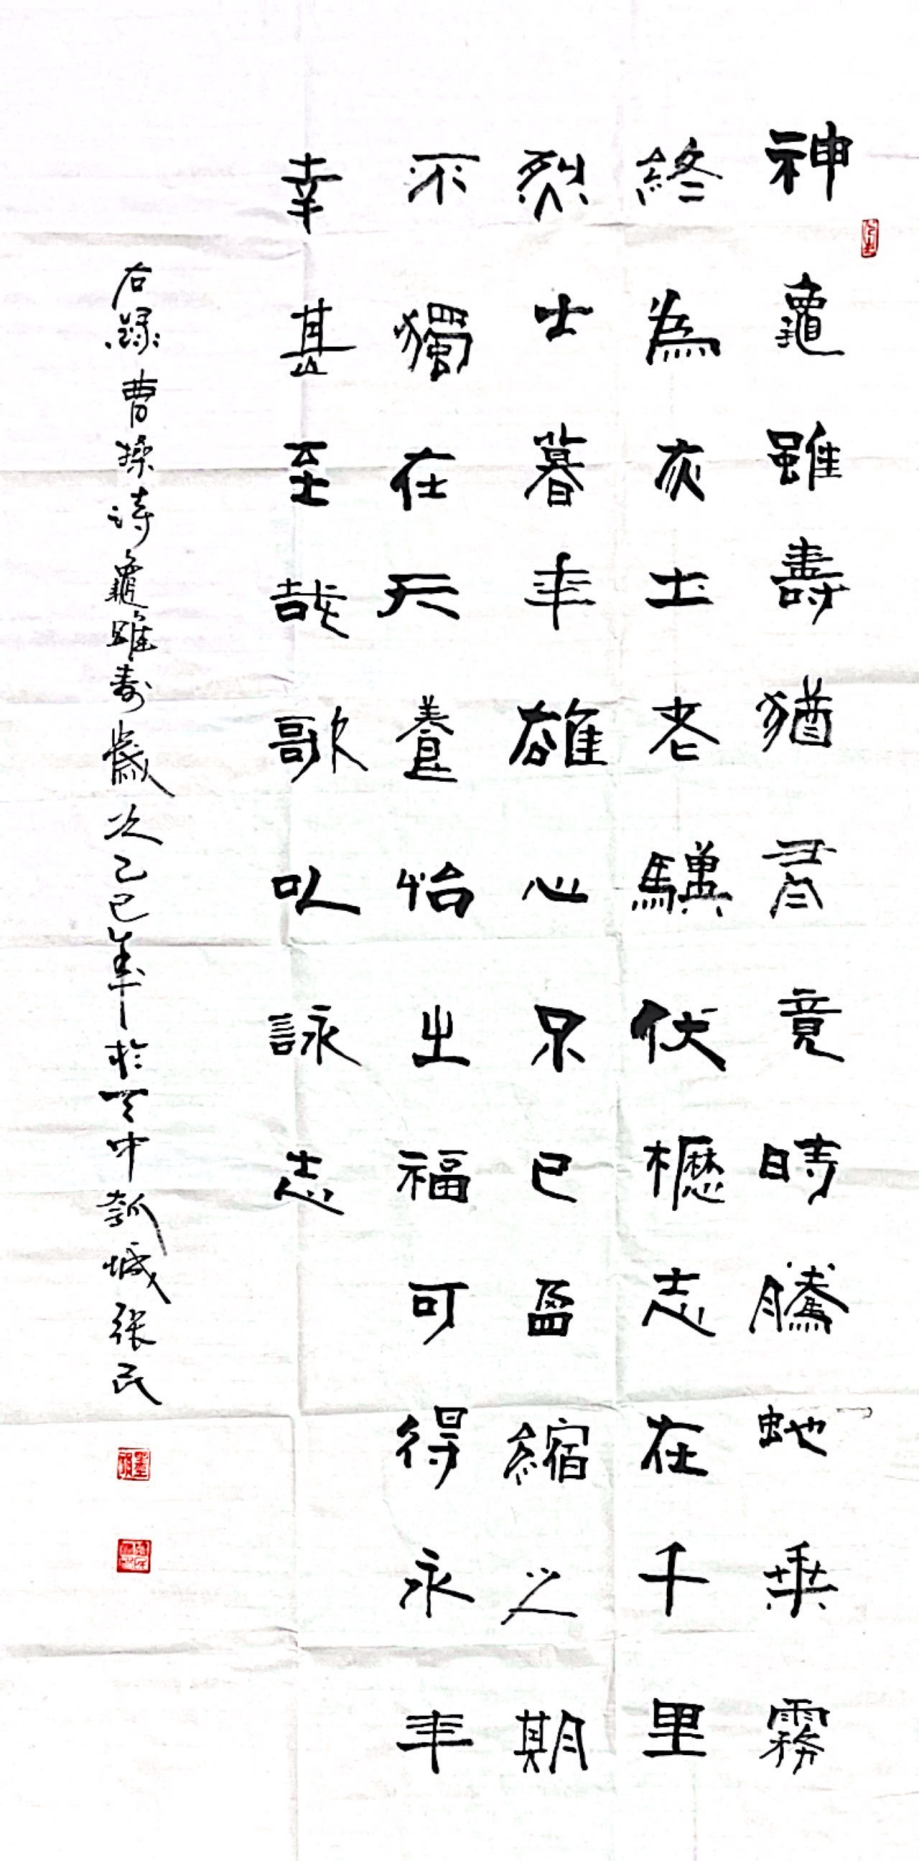 神龜雖壽猶有竟時騰虵乘霧
終為灰土老驥伏櫪志在千里
烈士暮年雄心不已盈縮之期
不獨在天養怡之福可得永年
幸甚至哉歌以詠志
右録曹操诗龜雖寿歲次乙巳年於天中瓠城张民